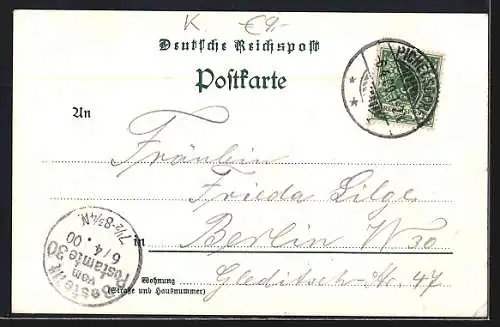 K. €9,-
Deutsche Reichspost
Postkarte
An
Fräulein
Frieda Lilge
in Berlin W 30
Wohnung Gleditsch-Str. 47
(Straße und Hausnummer)
Bestellt
vom
Postamte 30
6/4.00
7½-8¾N.